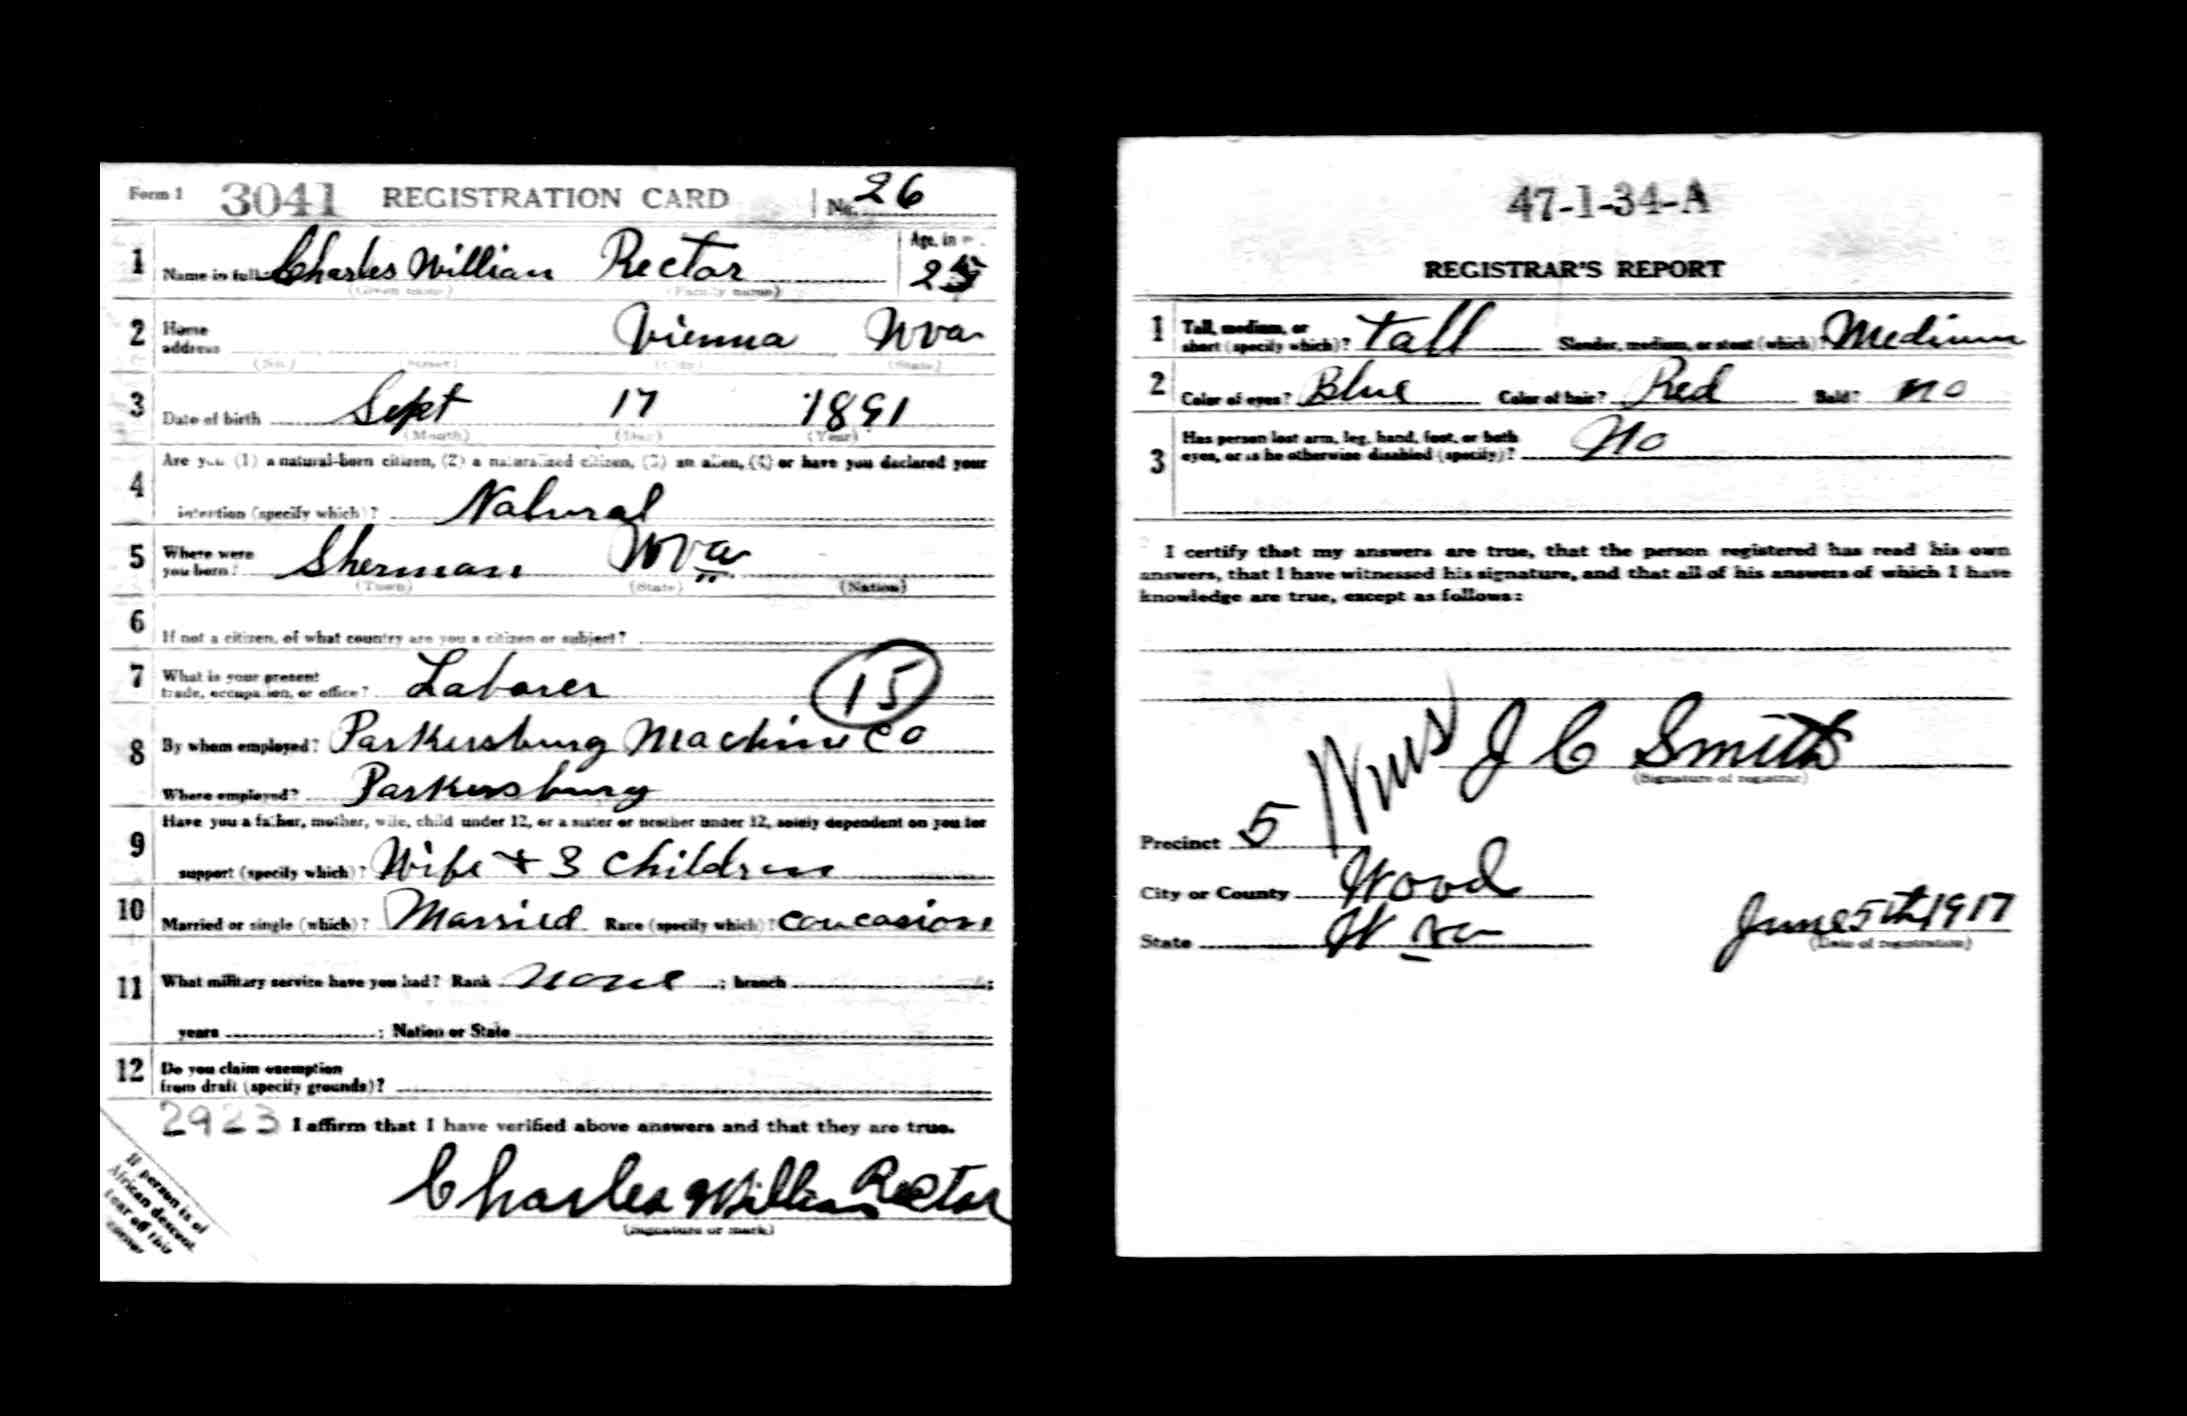 Form 1 3041 REGISTRATION CARD No. 26
1 Name in full Charles Willian Rector Age, in
(Given name) (Family name) 25
2 Home address Vienna Wva
(No.) (Street) (City) (State)
3 Date of birth Sept 17 1891
(Month) (Day) (Year)
4 Are you (1) a natural-born citizen, (2) a naturalized citizen, (3) an alien, (4) or have you declared your
intention (specify which)? Natural
5 Where were you born? Sherman Wva
(Town) (State) (Nation)
6 If not a citizen, of what country are you a citizen or subject?
7 What is your present trade, occupation, or office? Laborer 15
8 By whom employed? Parkersburg Machine Co
Where employed? Parkersburg
9 Have you a father, mother, wife, child under 12, or a sister or brother under 12, solely dependent on you for
support (specify which)? Wife + 3 Children
10 Married or single (which)? Married Race (specify which)? Coucasion
11 What military service have you had? Rank none ; branch ;
years ; Nation or State
12 Do you claim exemption
from draft (specify grounds)?
2923 I affirm that I have verified above answers and that they are true.
Charles Willian Rector
(Signature or mark)
If person is of
African descent,
tear off this
corner
47-1-34-A
REGISTRAR'S REPORT
1 Tall, medium, or short (specify which)? Tall Slender, medium, or stout (which)? Medium
2 Color of eyes? Blue Color of hair? Red Bald? no
3 Has person lost arm, leg, hand, foot, or both
eyes, or is he otherwise disabled (specify)? No
I certify that my answers are true, that the person registered has read his own
answers, that I have witnessed his signature, and that all of his answers of which I have
knowledge are true, except as follows:
J C Smith
(Signature of registrar)
Precinct 5
City or County Wood
State W va June 5th 1917
(Date of registration)